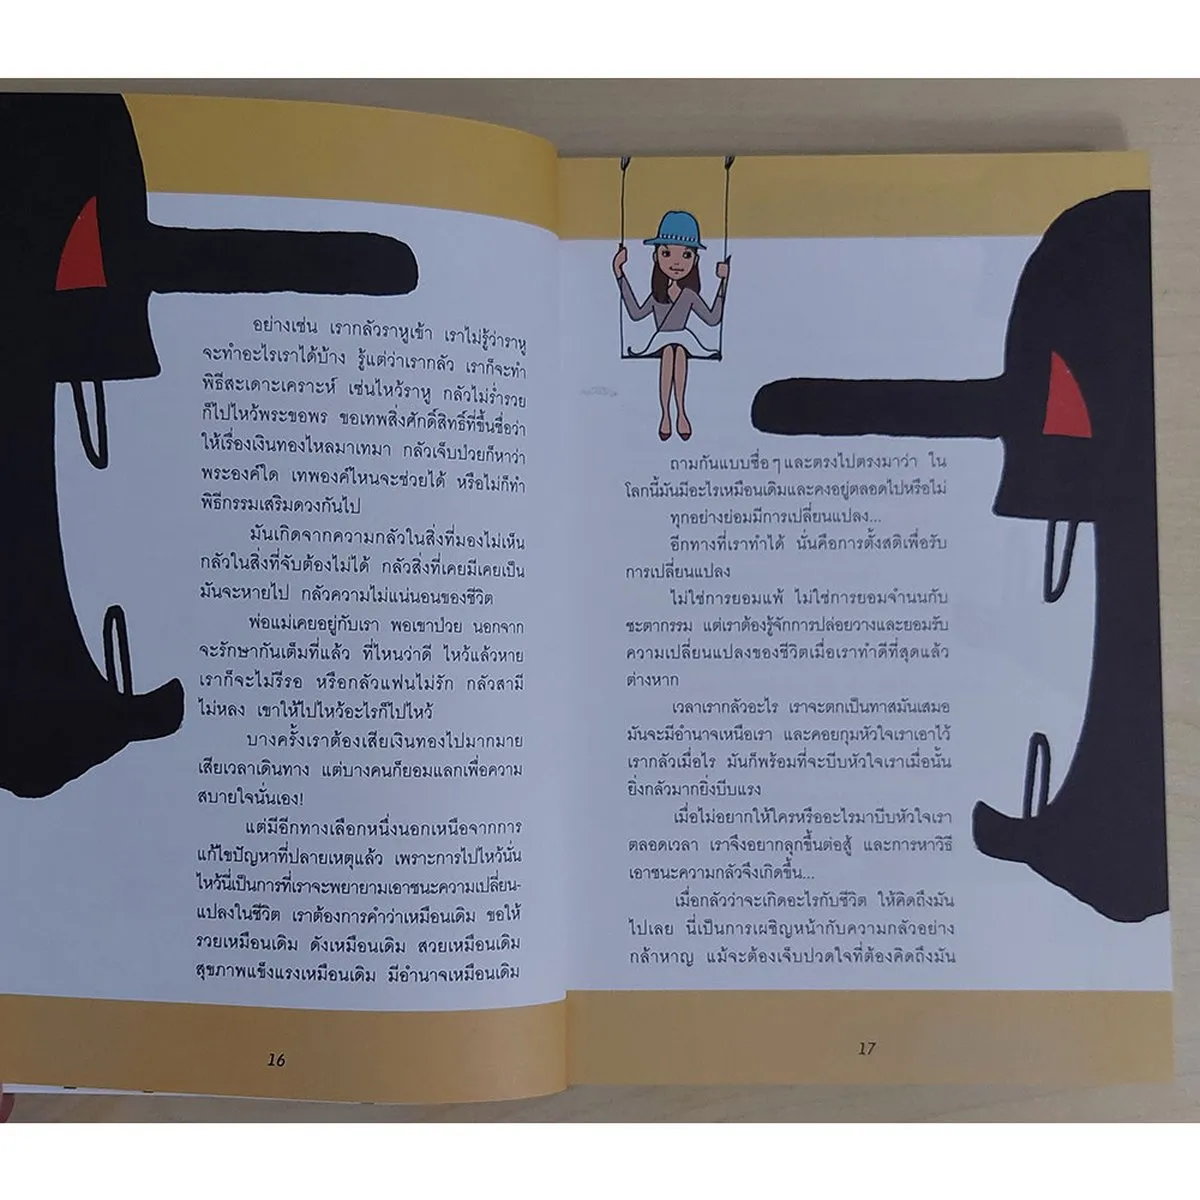 อย่างเช่น เรากลัวราหูเข้า เราไม่รู้ว่าราหู
จะทำอะไรเราได้บ้าง รู้แต่ว่าเรากลัว เราก็จะทำ
พิธีสะเดาะเคราะห์ เซ่นไหว้ราหู กลัวไม่ร่ำรวย
ก็ไปไหว้พระขอพร ขอเทพสิ่งศักดิ์สิทธิ์ที่ขึ้นชื่อว่า
ให้เรื่องเงินทองไหลมาเทมา กลัวเจ็บป่วยก็หาว่า
พระองค์ใด เทพองค์ไหนจะช่วยได้ หรือไม่ก็ทำ
พิธีกรรมเสริมดวงกันไป
มันเกิดจากความกลัวในสิ่งที่มองไม่เห็น
กลัวในสิ่งที่จับต้องไม่ได้ กลัวสิ่งที่เคยมีเคยเป็น
มันจะหายไป กลัวความไม่แน่นอนของชีวิต
พ่อแม่เคยอยู่กับเรา พอเขาป่วย นอกจาก
จะรักษากันเต็มที่แล้ว ที่ไหนว่าดี ไหว้แล้วหาย
เราก็จะไม่รีรอ หรือกลัวแฟนไม่รัก กลัวสามี
ไม่หลง เขาให้ไปไหว้อะไรก็ไปไหว้
บางครั้งเราต้องเสียเงินทองไปมากมาย
เสียเวลาเดินทาง แต่บางคนก็ยอมแลกเพื่อความ
สบายใจนั่นเอง!
แต่มีอีกทางเลือกหนึ่งนอกเหนือจากการ
แก้ไขปัญหาที่ปลายเหตุแล้ว เพราะการไปไหว้นั่น
ไหว้นี่เป็นการที่เราจะพยายามเอาชนะความเปลี่ยน-
แปลงในชีวิต เราต้องการคำว่าเหมือนเดิม ขอให้
รวยเหมือนเดิม ดังเหมือนเดิม สวยเหมือนเดิม
สุขภาพแข็งแรงเหมือนเดิม มีอำนาจเหมือนเดิม
16
ถามกันแบบซื่อๆ และตรงไปตรงมาว่า ใน
โลกนี้มันมีอะไรเหมือนเดิมและคงอยู่ตลอดไปหรือไม่
ทุกอย่างย่อมมีการเปลี่ยนแปลง...
อีกทางที่เราทำได้ นั่นคือการตั้งสติเพื่อรับ
การเปลี่ยนแปลง
ไม่ใช่การยอมแพ้ ไม่ใช่การยอมจำนนกับ
ชะตากรรม แต่เราต้องรู้จักการปล่อยวางและยอมรับ
ความเปลี่ยนแปลงของชีวิตเมื่อเราทำดีที่สุดแล้ว
ต่างหาก
เวลาเรากลัวอะไร เราจะตกเป็นทาสมันเสมอ
มันจะมีอำนาจเหนือเรา และคอยกุมหัวใจเราเอาไว้
เรากลัวเมื่อไร มันก็พร้อมที่จะบีบหัวใจเราเมื่อนั้น
ยิ่งกลัวมากยิ่งบีบแรง
เมื่อไม่อยากให้ใครหรืออะไรมาบีบหัวใจเรา
ตลอดเวลา เราจึงอยากลุกขึ้นต่อสู้ และการหาวิธี
เอาชนะความกลัวจึงเกิดขึ้น...
เมื่อกลัวว่าจะเกิดอะไรกับชีวิต ให้คิดถึงมัน
ไปเลย นี่เป็นการเผชิญหน้ากับความกลัวอย่าง
กล้าหาญ แม้จะต้องเจ็บปวดใจที่ต้องคิดถึงมัน
17